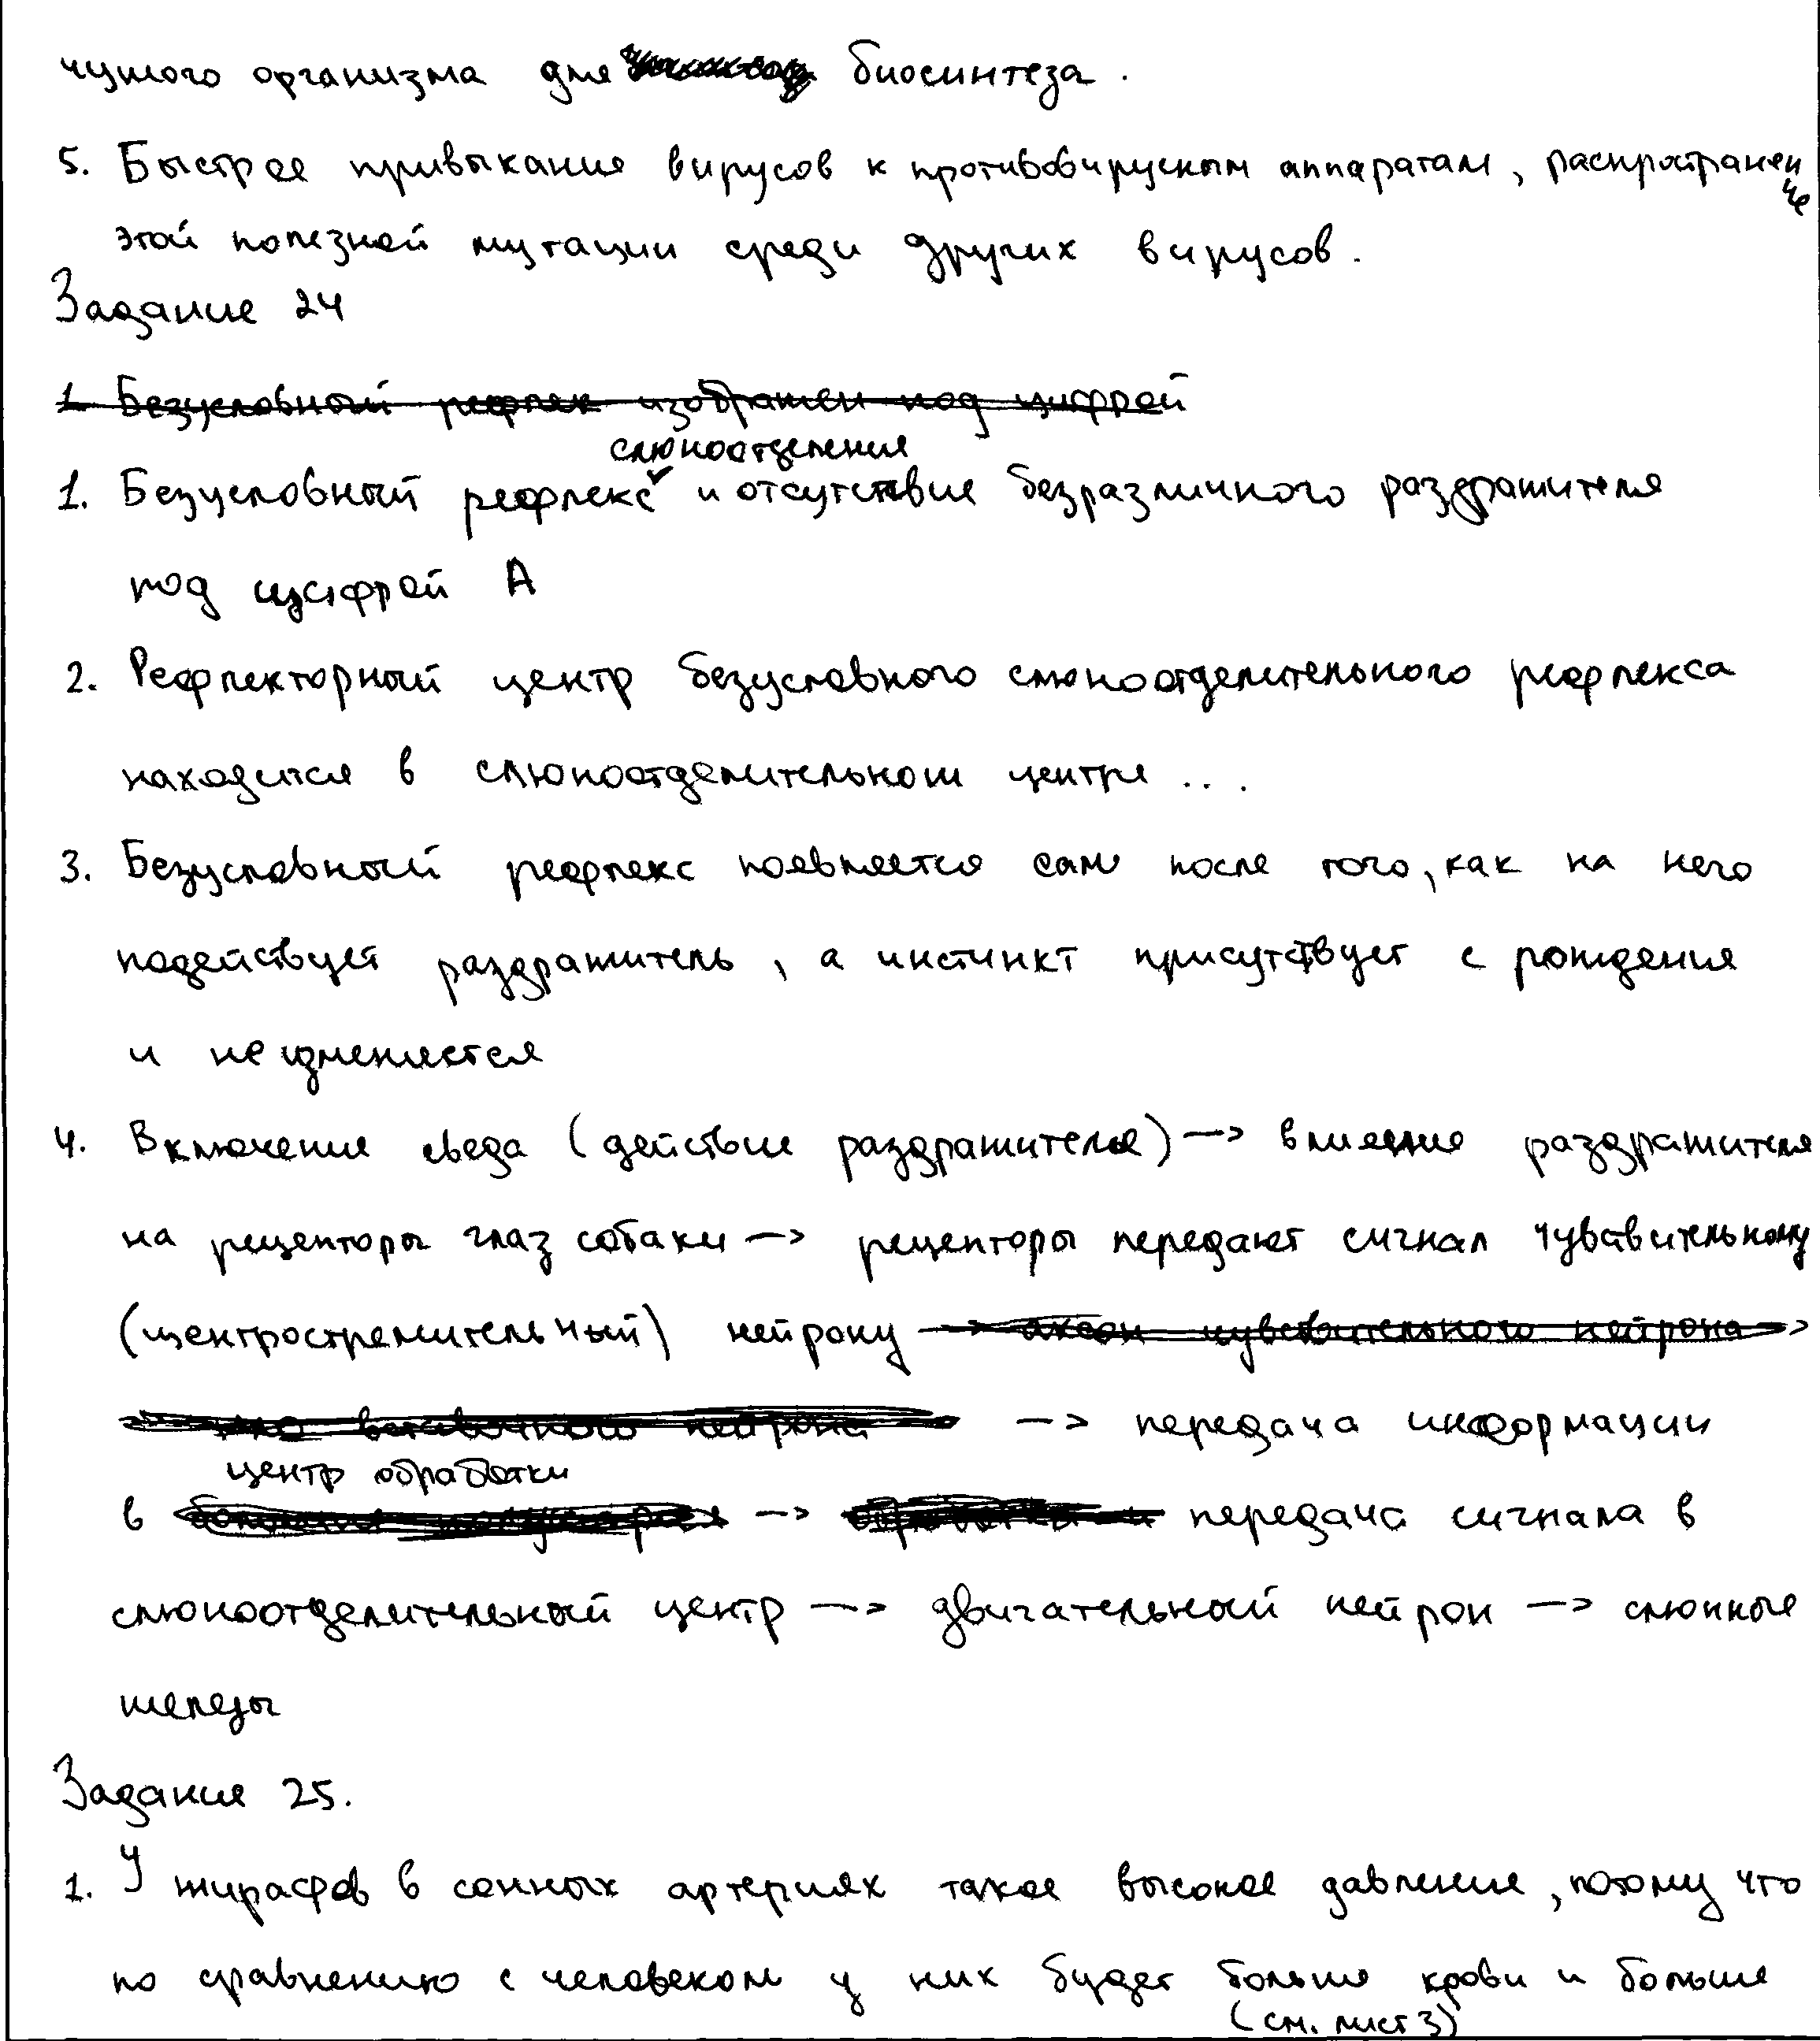 чужого организма для биосинтеза.
5. Быстрое привыкание вирусов к противовирусным аппаратам, распространение
этой полезной мутации среди других вирусов.
Задание 24
1. Безусловный рефлек изображен под цифрой
слюноотделения
1. Безусловный рефлекс и отсутствие безразличного раздражителя
под цифрой А
2. Рефлекторный центр безусловного слюноотделительного рефлекса
находится в слюноотделительном центре...
3. Безусловный рефлекс появляется сам после того, как на него
подействует раздражитель, а инстинкт присутствует с рождения
и не изменяется
4. Включение сведа (действие раздражителя) —> влияние раздражителя
на рецепторы глаз собаки —> рецепторы передают сигнал чувствительному
(центростремительный) нейрону —> аксон чувствительного нейрона —>
вставочного нейрона —> передача информации
центр обработки
в —> передача сигнала в
слюноотделительный центр —> двигательный нейрон —> слюнные
железы
Задание 25.
1. У жирафов в сонных артериях такое высокое давление, потому что
по сравнению с человеком у них будет больше крови и больше
(см. лист 3)